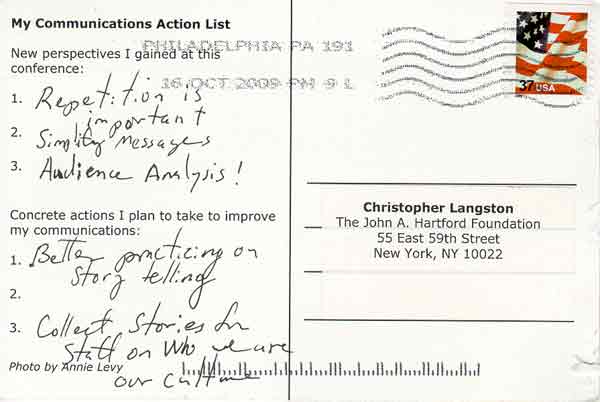 My Communications Action List
PHILADELPHIA PA 191
New perspectives I gained at this
conference:
16 OCT 2009 PM 9 L
1. Repetition is
important
2. Simplify Messages
3. Audience Analysis!
Concrete actions I plan to take to improve
my communications:
1. Better practicing on
Story telling
2.
3. Collect Stories for
Staff on Who we are
our culture
Photo by Annie Levy
37 USA
Christopher Langston
The John A. Hartford Foundation
55 East 59th Street
New York, NY 10022